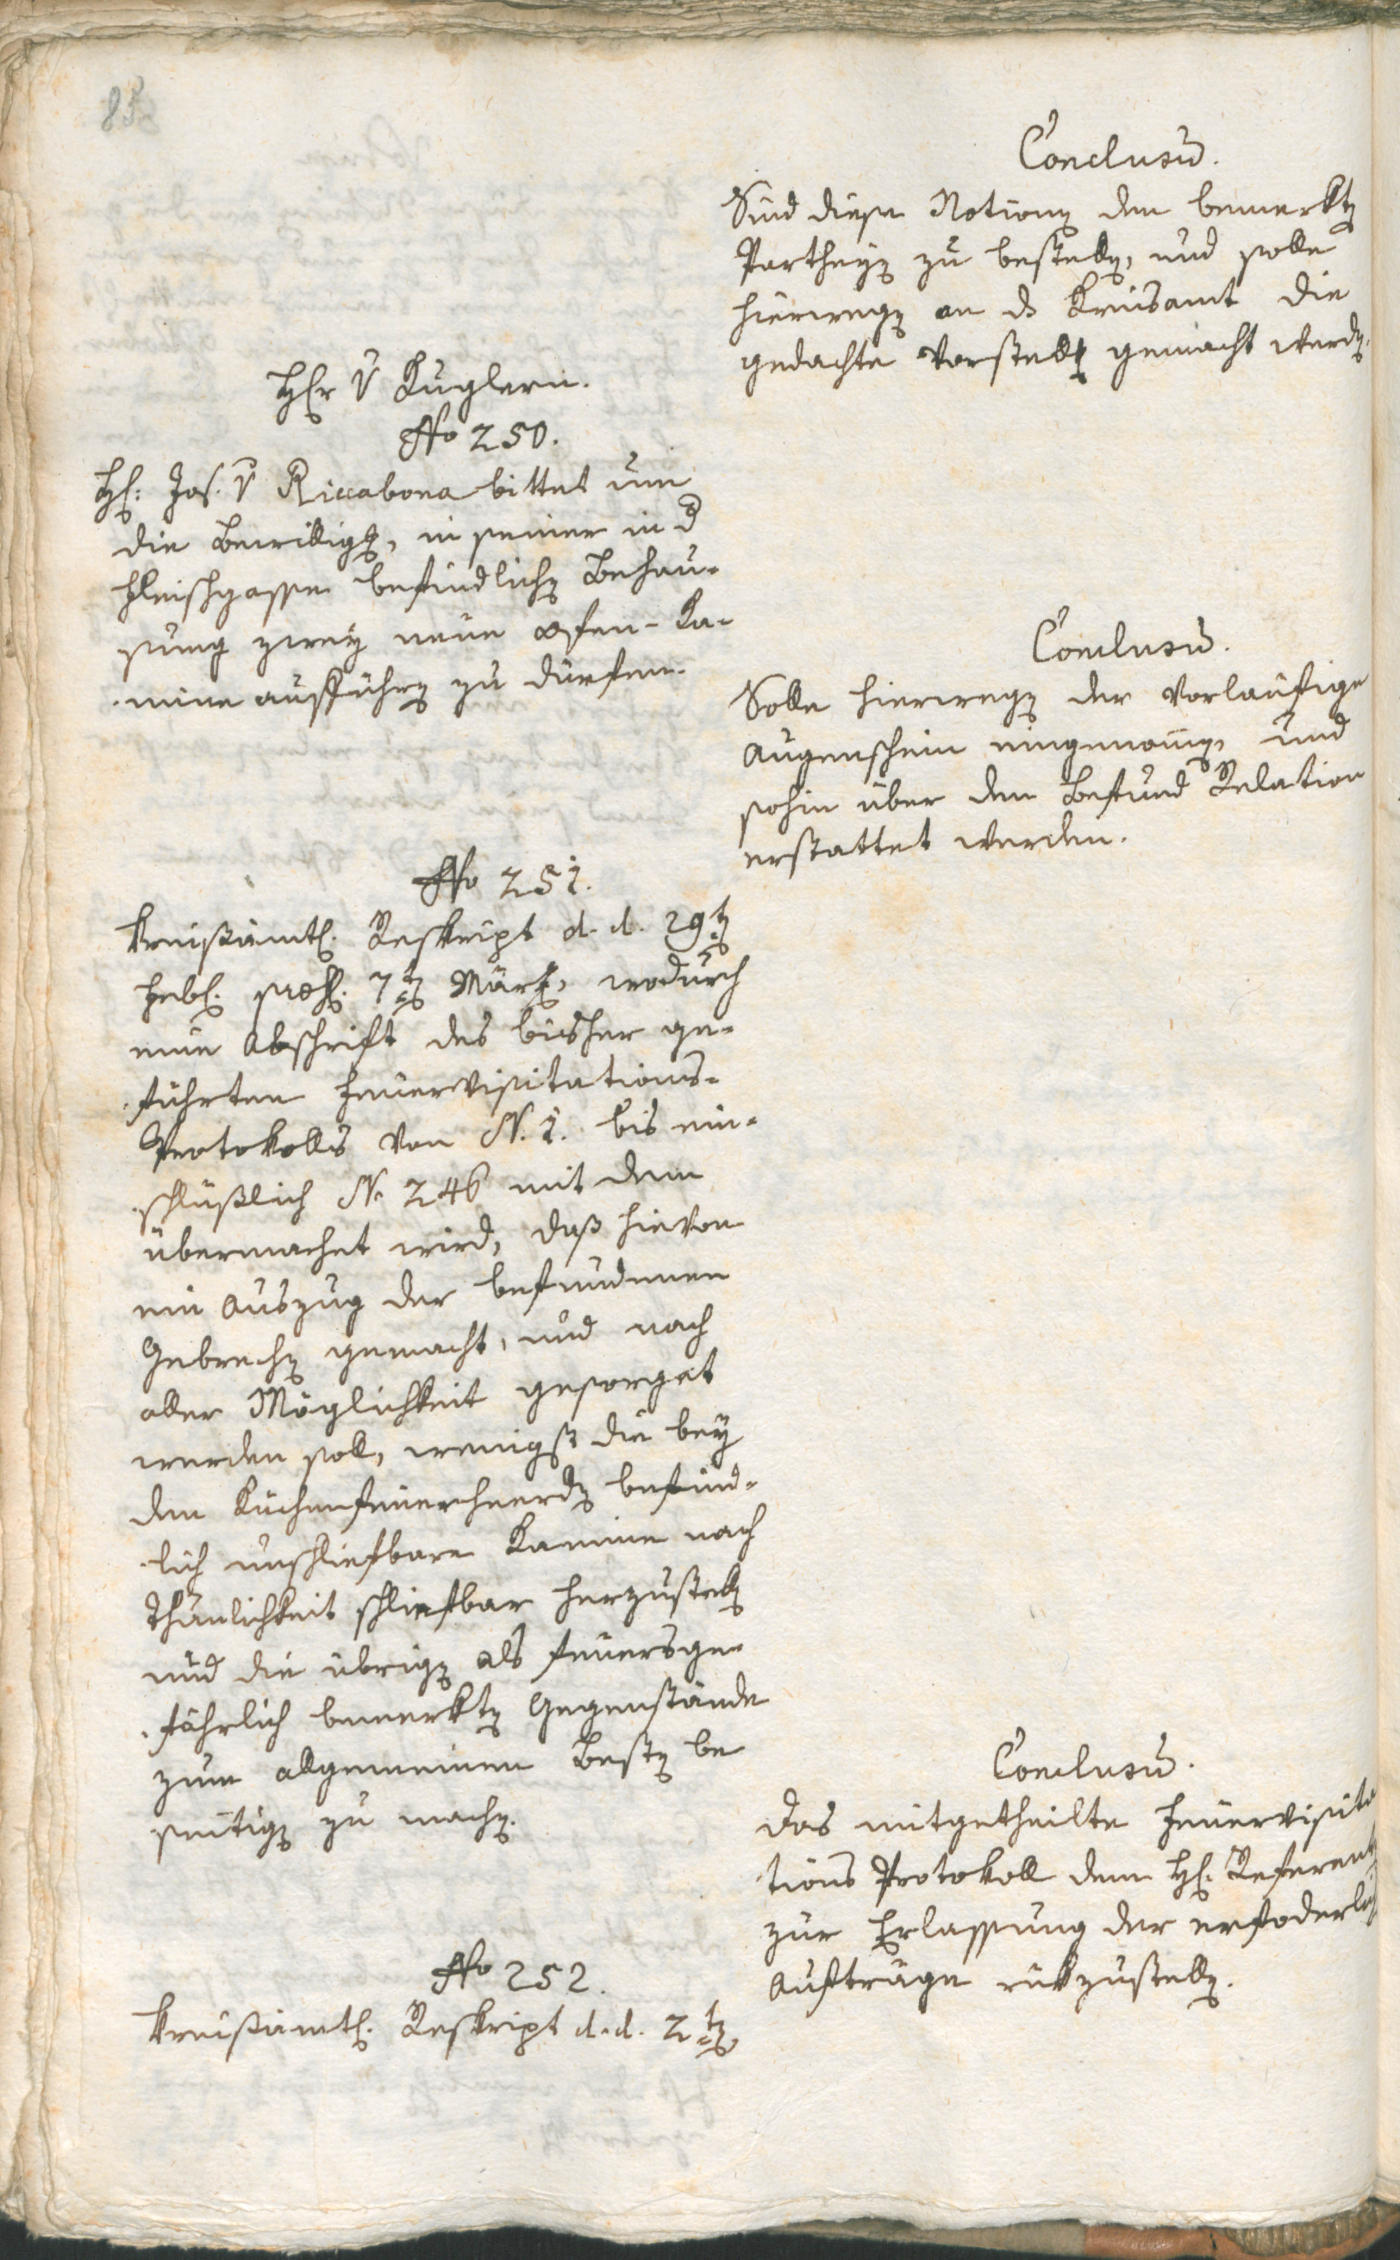 85
Conclusū.
Sind diese Notionen den bemerkten
Partheyen zu bestellen, und solle
hierwegen an ds Kreisamt die
gedachte Vorstellung gemacht werden.
Hr v Kuglern.
No 250.
H: Jos. v Riccabona bittet um
die Bewilligung, in seiner in d
Fleischgasse befindlichen Behau-
sung zwey neue Ofen-Ka-
mine aufführen zu dürfen.
Conclusū.
Solle hierwegen der vorläufige
Augenschein eingenommen, und
sohin über den Befund Relation
erstattet werden.
No 251.
Kreisämtl. Reskript d. d. 29ten
Febl. præs. 7ten März, wodurch
eine Abschrift des bisher ge-
führten Feuervisitations-
Protokolls von N. 1. bis ein-
schlüßlich N. 246 mit dem
übermachet wird, daß hievon
ein Auszug der befundenen
Gebrechen gemacht, und nach
aller Möglichkeit gesorget
werden soll, wenigst die bey
den Küchenfeuerheerden befind-
lich unschliefbare Kamine nach
Thunlichkeit schliefbar herzustellen
und die übrigen als feuersge-
fährlich bemerkten Gegenstände
zum allgemeinen Besten be
seitigen zu machen.
Conclusū.
Das mitgetheilte Feuervisita
tions Protokoll dem H. Referenten
zur Erlassung der erfoderlich
Aufträge rükzustellen.
No 252.
Kreisämtl. Reskript d. d. 2ten